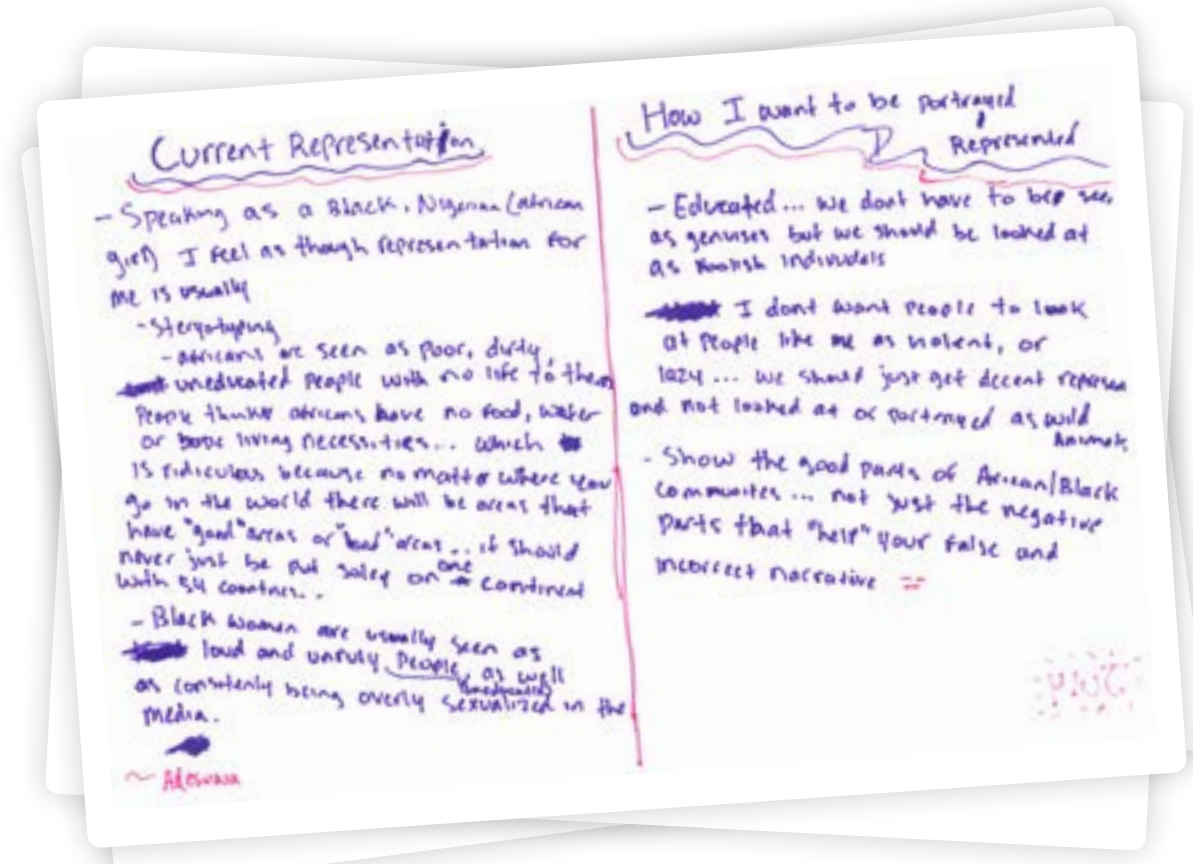 Current Representation
- Speaking as a Black, Nigerian (african
girl) I feel as though representation for
me is usually
- Stereotyping
- africans are seen as poor, dirty,
uneducated people with no life to them
People thinks africans have no food, water
or basic living necessities... which
is ridiculous because no matter where you
go in the world there will be areas that
have "good" areas or "bad" areas... it should
never just be put soley on one continent
with 54 countries..
- Black women are usually seen as
loud and unruly people, as well
as consitenly being overly sexualized in the
media.
~
How I want to be portrayed
Represented
- Educated... we dont have to be see
as genuises but we should be looked at
as foolish individuals
I dont want people to look
at people like me as violent, or
lazy... we should just get decent represen
and not looked at or portrayed as wild
Animals
- Show the good parts of African/Black
communites... not just the negative
parts that "help" your false and
incorrect narrative